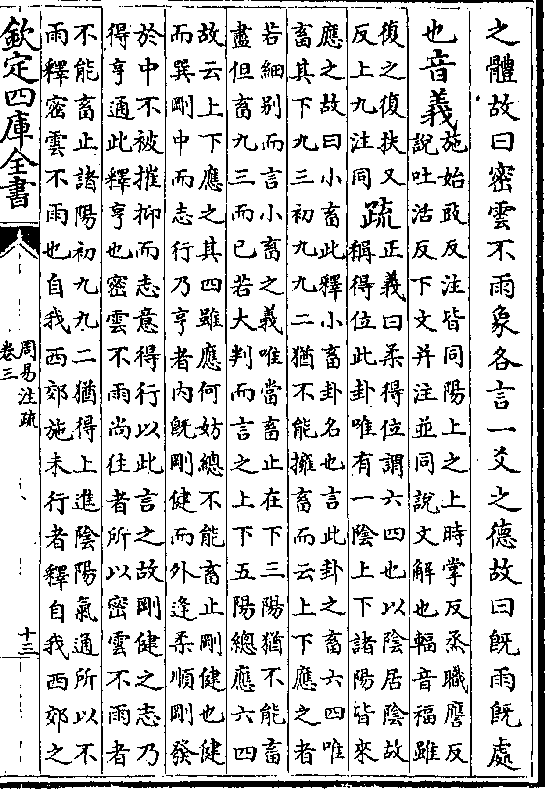 之體故曰密雲不雨象各言一爻之德故曰既雨既處
也音義
施始豉反注皆同陽上之上時掌反烝職膺反
說吐活反下文并注並同說文解也輻音福雖
復之復扶又
反上九注同
疏
正義曰柔得位謂六四也以陰居陰故
稱得位此卦唯有一陰上下諸陽皆來
應之故曰小畜此釋小畜卦名也言此卦之畜六四唯
畜其下九三初九九二猶不能擁畜而云上下應之者
若細别而言小畜之義唯當畜止在下三陽猶不能畜
盡但畜九三而已若大判而言之上下五陽總應六四
故云上下應之其四雖應何妨總不能畜止剛健也健
而巽剛中而志行乃亨者内既剛健而外逢柔順剛發
於中不被摧抑而志意得行以此言之故剛健之志乃
得亨通此釋亨也密雲不雨尚往者所以密雲不雨者
不能畜止諸陽初九九二猶得上進陰陽氣通所以不
雨釋密雲不雨也自我西郊施未行者釋自我西郊之
欽定四庫全書
周易注疏
卷三
十三